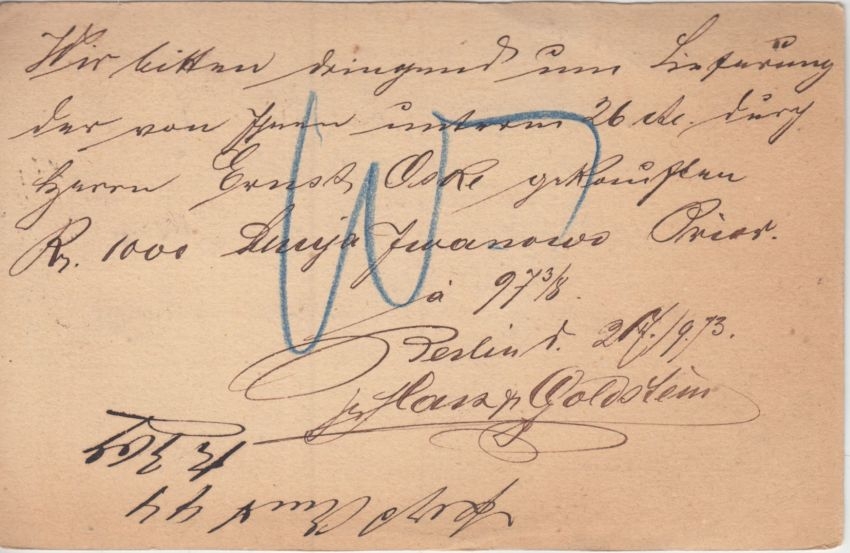 Wir bitten dringend um Lieferung
der von Ihnen unterm 26 ds. durch
Herrn Ernst Oske gekauften
R. 1000 Schuja Iwanowo Prior.
à 97 3/8.
Berlin d. 27./9.73.
Goldstein
W